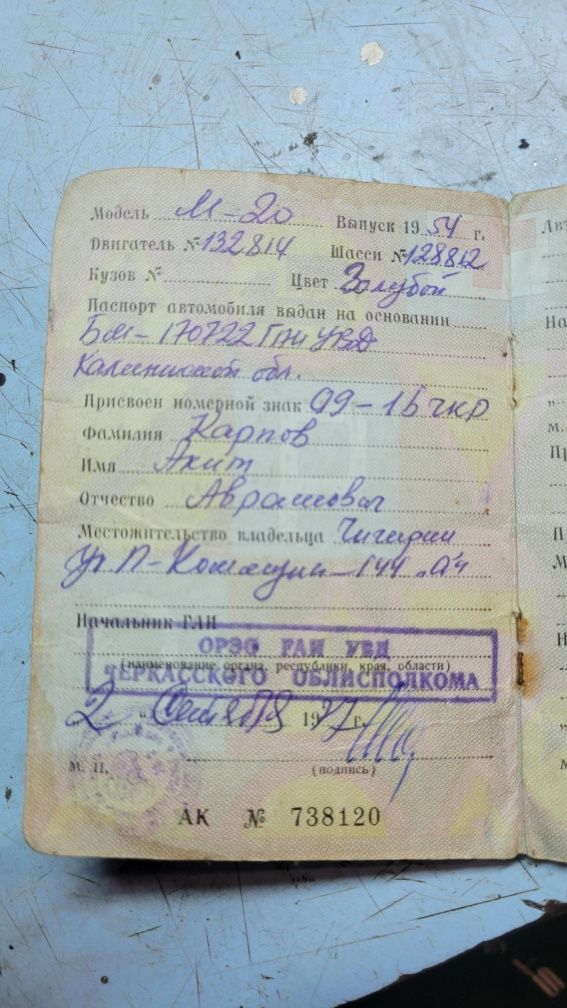 Модель М-20 Выпуск 1954 г.
Двигатель № 132814 Шасси № 128812
Кузов № Цвет Голубой
Паспорт автомобиля выдан на основании
БМ-170722 ГАИ УВД
Калининской обл.
Присвоен номерной знак 09-16 ЧКР
Фамилия Карпов
Имя
Отчество Аврамович
Местожительство владельца Чигирин
Ул П-Комисии-144 "А"
Начальник ГАИ
ОРЭО ГАИ УВД
(наименование органа, республики, края, области)
ЧЕРКАССКОГО ОБЛИСПОЛКОМА
2 " Сентября 1977 г.
М. П. (подпись)
АК № 738120